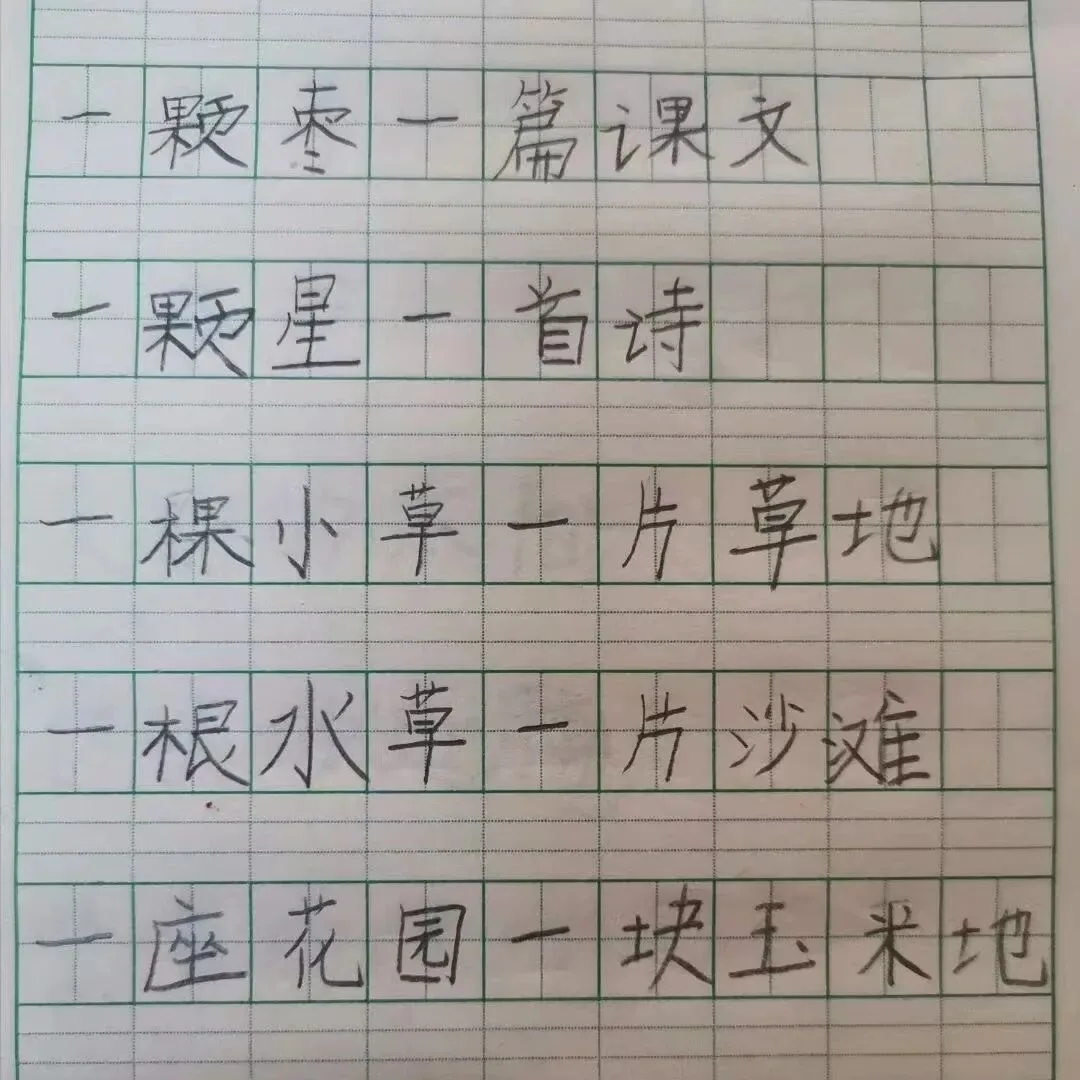 一颗枣一篇课文
一颗星一首诗
一棵小草一片草地
一根水草一片沙滩
一座花园一块玉米地